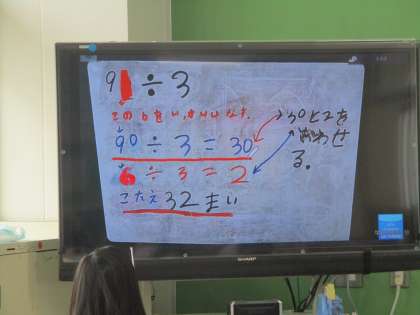 9 ÷ 3
この6をいったんけします。
90 ÷ 3 = 30
6 ÷ 3 = 2
こたえ 32まい
30と2を
あわせ
る。
SHARP